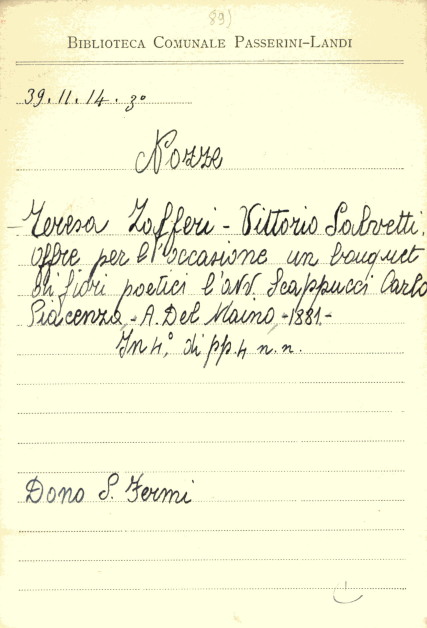 89)
BIBLIOTECA COMUNALE PASSERINI-LANDI
39.11.14.3°
Nozze
- Teresa Zafferi - Vittorio Salvetti.
offre per l'occasione un bouquet
di fiori poetici l'avv. Scappucci Carlo
Piacenza - A. Del Maino - 1881 -
In 4.° di pp. 4 n. n.
Dono S. Fermi